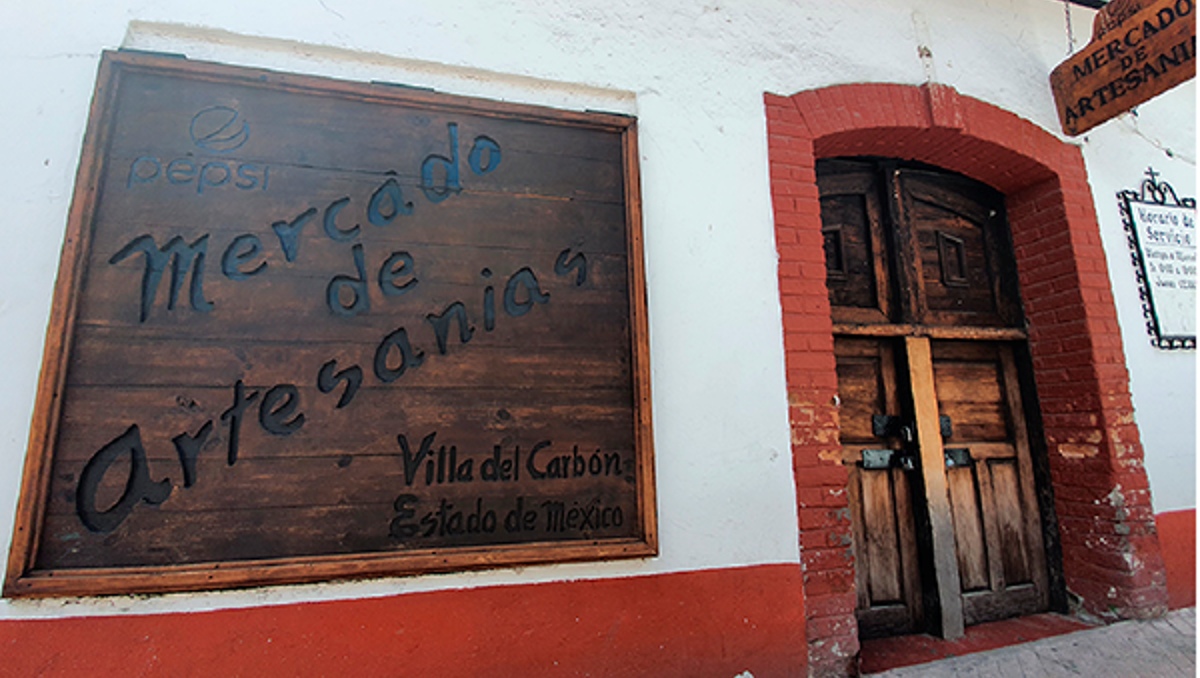 pepsi
Mercado
de
Artesanias
Villa del Carbón
Estado de México
pepsi
MERCADO
DE
ARTESANI
Horario de
Servicio